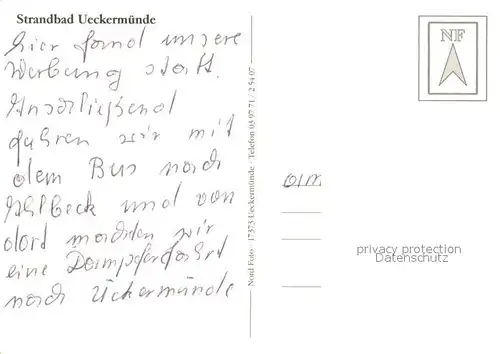 Strandbad Ueckermünde
Hier fand unsere
Werbung statt.
Anschließend
fuhren wir mit
dem Bus nach
Ahlbeck und von
dort machten wir
eine Dampferfahrt
nach Ückermünde
Nord Foto · 17373 Ueckermünde · Telefon 03 97 71 / 2 54 07
NF
privacy protection
Datenschutz